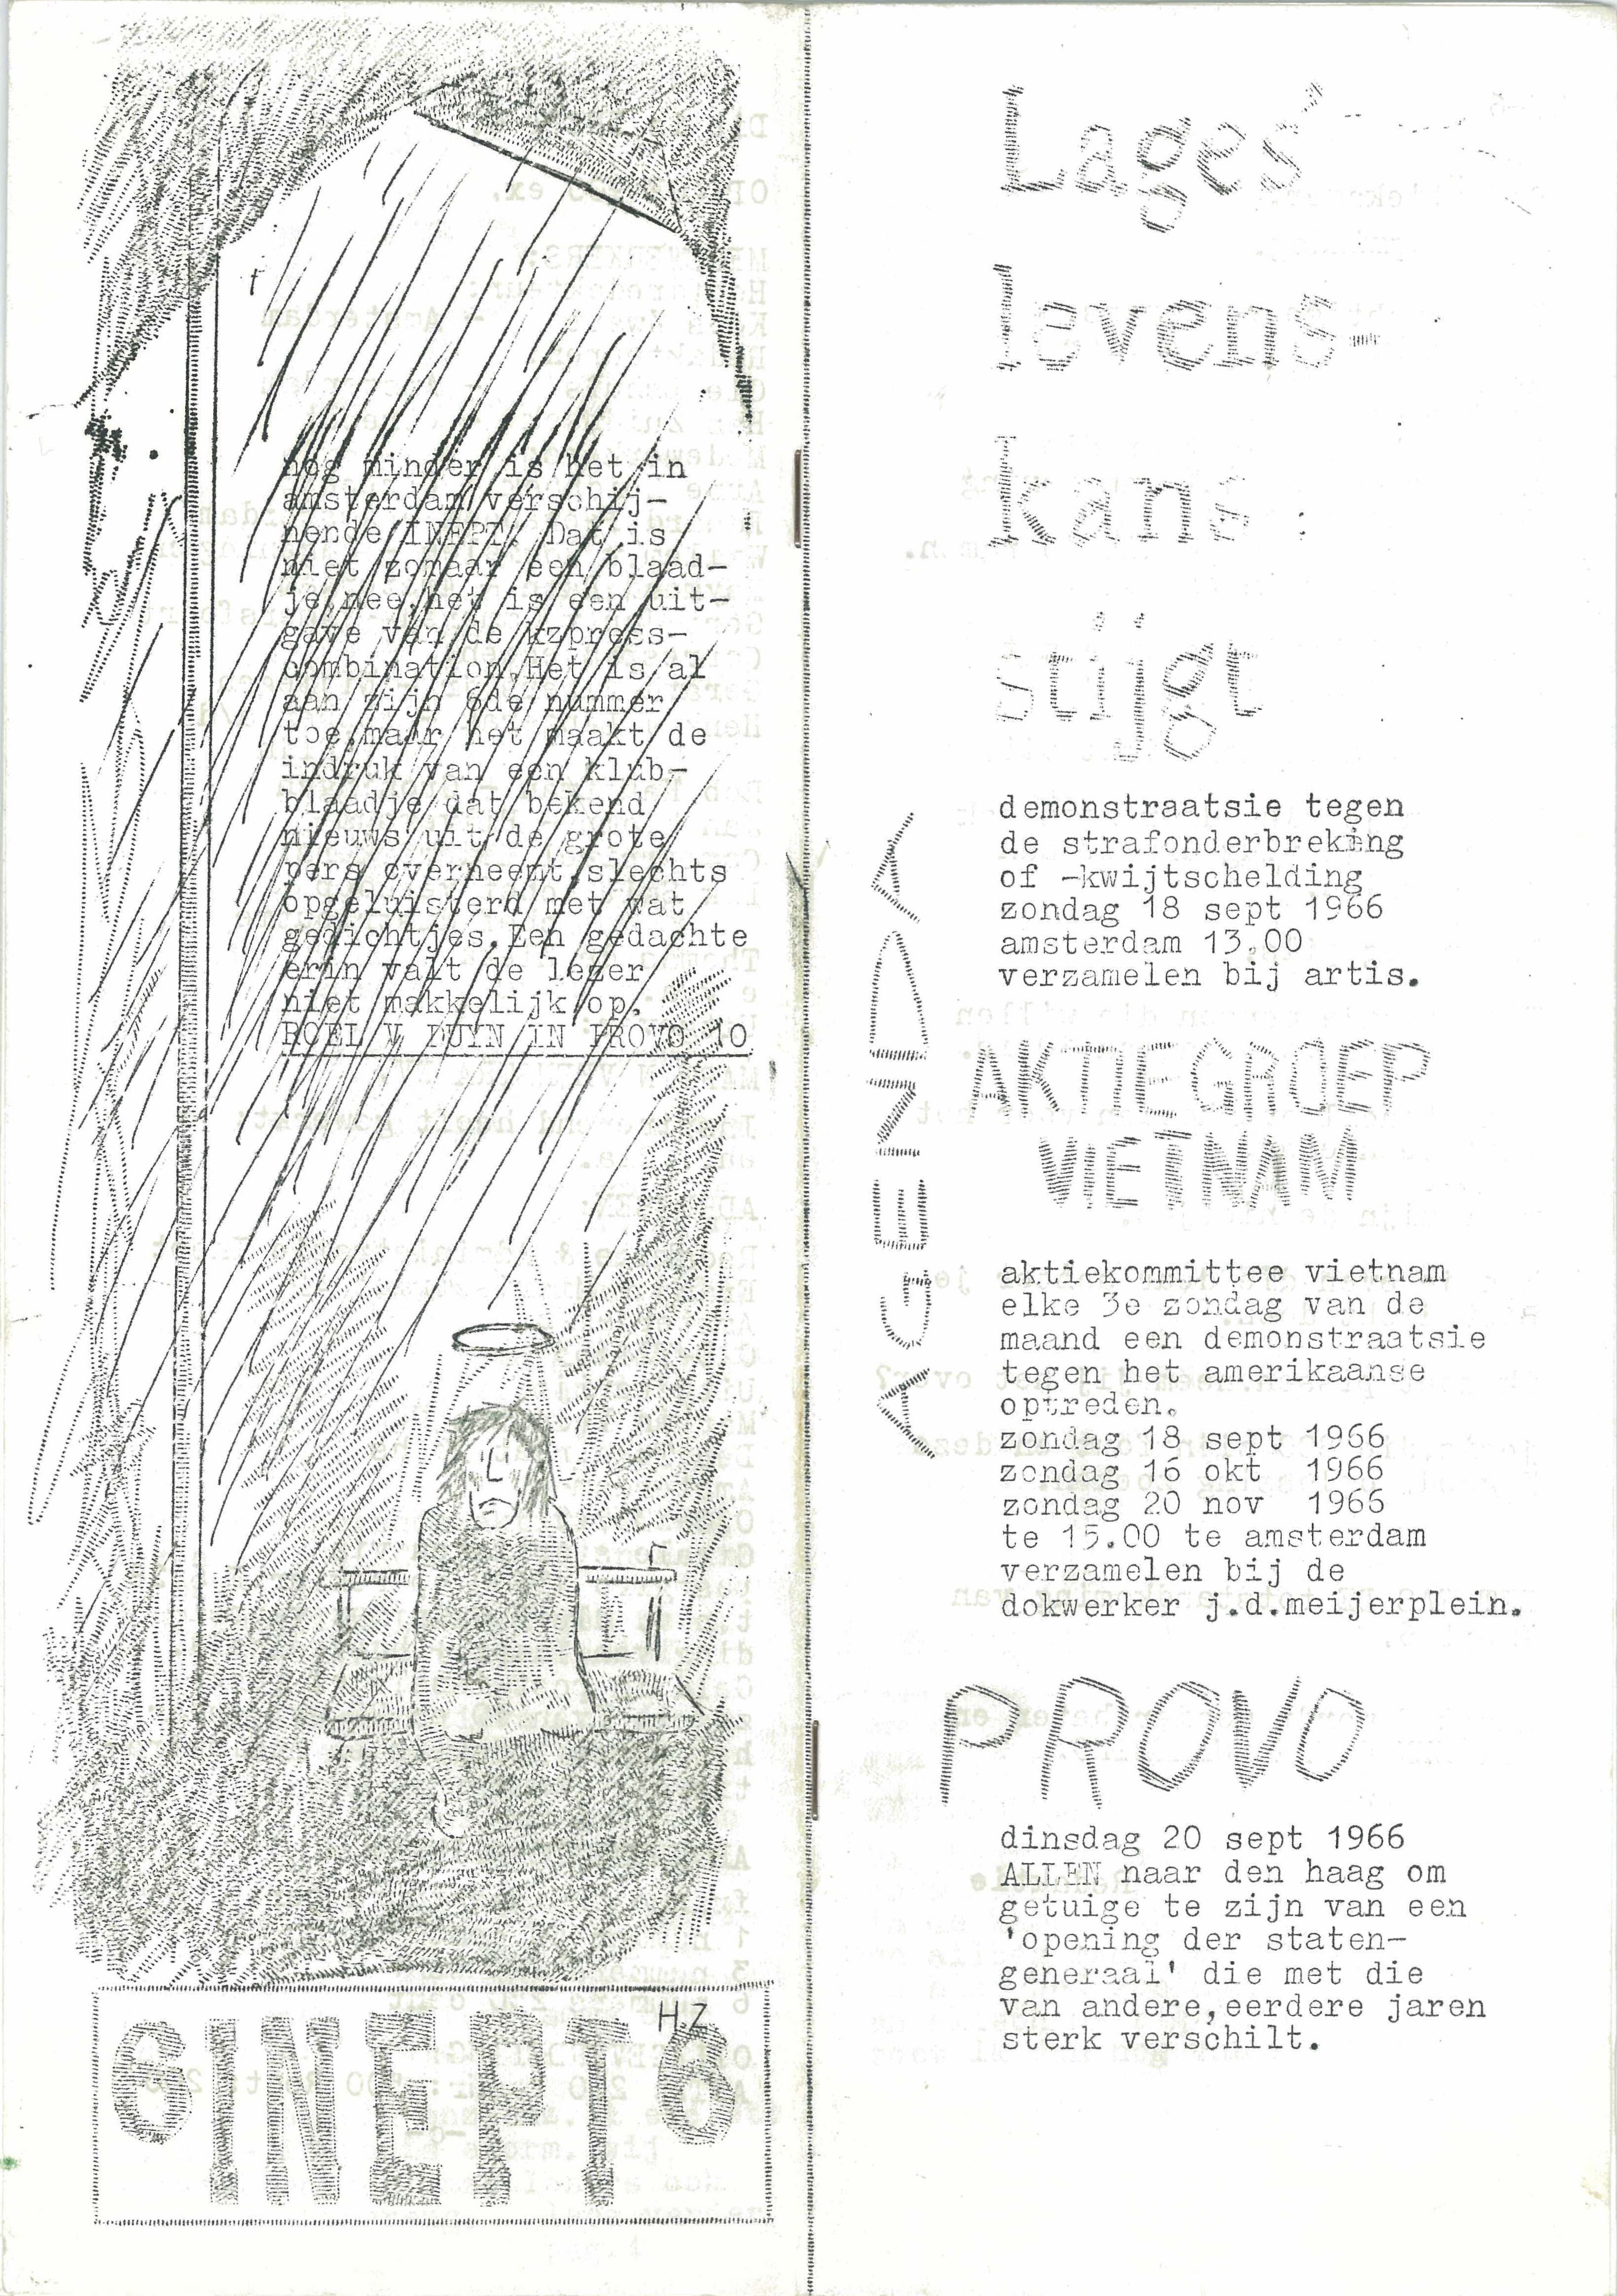 nog minder is het in
amsterdam verschij-
nende INEPT. Dat is
niet zomaar een blaad-
je,nee,het is een uit-
gave van de kzpress-
combination.Het is al
aan zijn 6de nummer
toe,maar het maakt de
indruk van een klub-
blaadje dat bekend
nieuws uit de grote
pers overneemt,slechts
opgeluisterd met wat
gedichtjes.Een gedachte
erin valt de lezer
niet makkelijk op.
ROEL V DUYN IN PROVO 10
H.Z
6INEPT6
Lages'
levens-
kans
stijgt
demonstraatsie tegen
de strafonderbreking
of -kwijtschelding
zondag 18 sept 1966
amsterdam 13.00
verzamelen bij artis.
AGENDA
AKTIEGROEP
VIETNAM
aktiekommittee vietnam
elke 3e zondag van de
maand een demonstraatsie
tegen het amerikaanse
optreden.
zondag 18 sept 1966
zondag 16 okt 1966
zondag 20 nov 1966
te 15.00 te amsterdam
verzamelen bij de
dokwerker j.d.meijerplein.
PROVO
dinsdag 20 sept 1966
ALLEN naar den haag om
getuige te zijn van een
'opening der staten-
generaal' die met die
van andere,eerdere jaren
sterk verschilt.